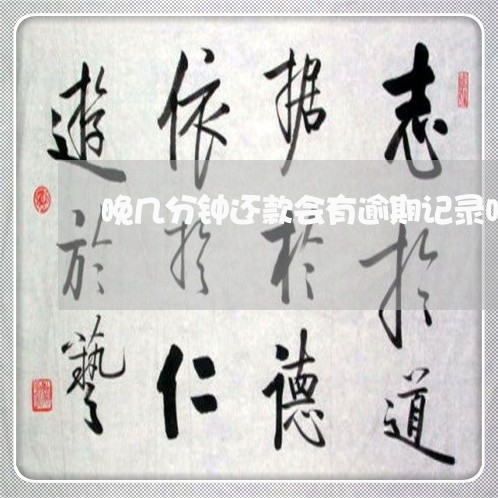 志於道
据於德
依於仁
遊於藝
晚几分钟还款会有逾期记录